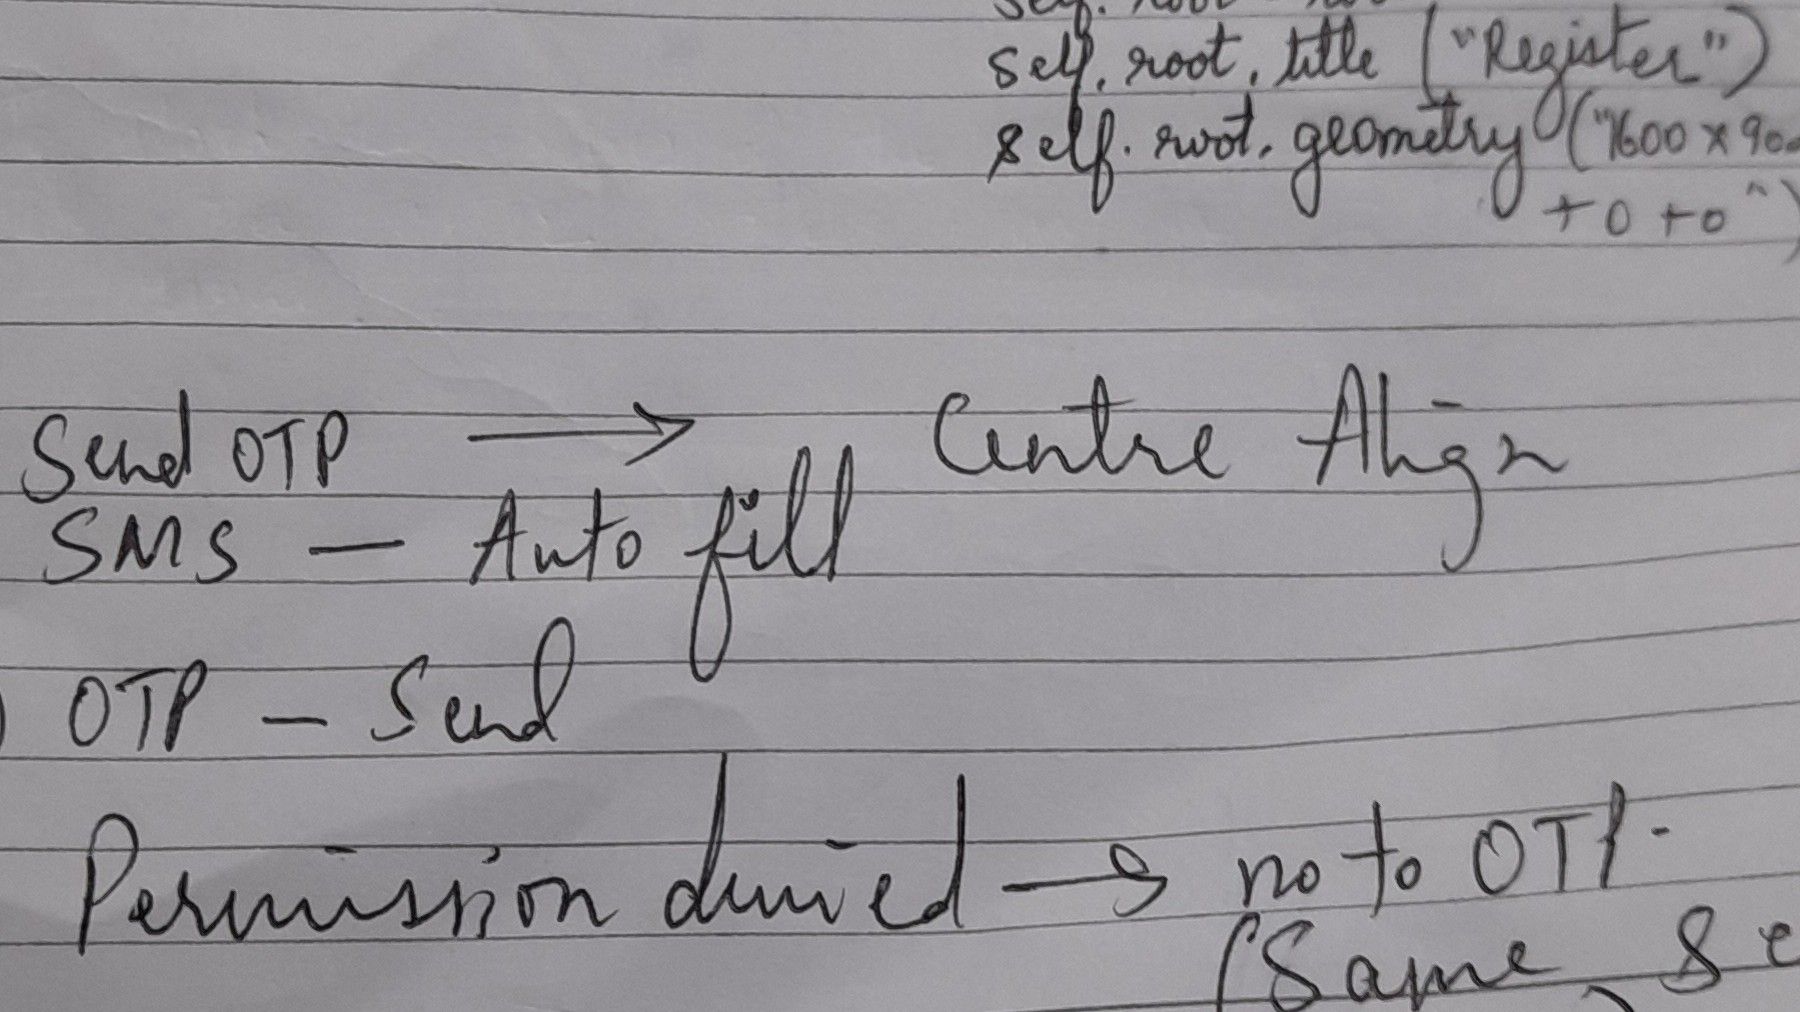 self. root
self. root. title ("Register")
self. root. geometry ("1600 x 900
+0+0")
Send OTP → Centre Align
SMS — Auto fill
OTP — Send
Permission denied → no to OTP.
(Same